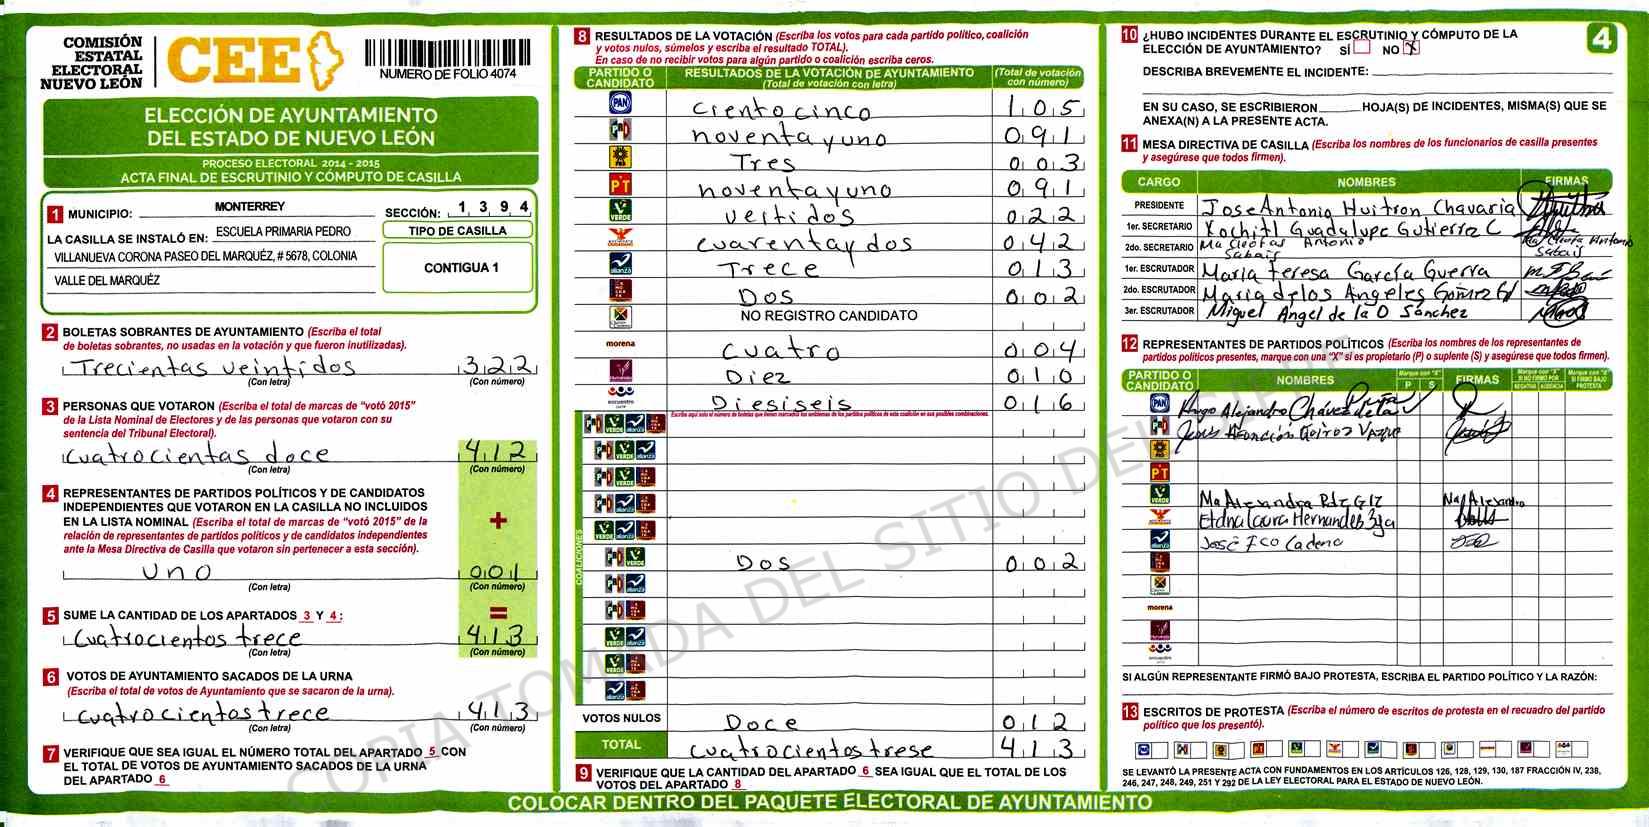 COMISIÓN
ESTATAL
ELECTORAL
NUEVO LEÓN
CEE
NUMERO DE FOLIO 4074
ELECCIÓN DE AYUNTAMIENTO
DEL ESTADO DE NUEVO LEÓN
PROCESO ELECTORAL 2014 - 2015
ACTA FINAL DE ESCRUTINIO Y CÓMPUTO DE CASILLA
1 MUNICIPIO: MONTERREY
SECCIÓN: 1 3 9 4
LA CASILLA SE INSTALÓ EN: ESCUELA PRIMARIA PEDRO
VILLANUEVA CORONA PASEO DEL MARQUÉZ, # 5678, COLONIA
VALLE DEL MARQUÉZ
TIPO DE CASILLA
CONTIGUA 1
2 BOLETAS SOBRANTES DE AYUNTAMIENTO (Escriba el total
de boletas sobrantes, no usadas en la votación y que fueron inutilizadas).
Trecientas veintidos 322
(Con letra) (Con número)
3 PERSONAS QUE VOTARON (Escriba el total de marcas de “votó 2015”
de la Lista Nominal de Electores y de las personas que votaron con su
sentencia del Tribunal Electoral).
Cuatrocientas doce 412
(Con letra) (Con número)
4 REPRESENTANTES DE PARTIDOS POLÍTICOS Y DE CANDIDATOS
INDEPENDIENTES QUE VOTARON EN LA CASILLA NO INCLUIDOS
EN LA LISTA NOMINAL (Escriba el total de marcas de “votó 2015” de la
relación de representantes de partidos políticos y de candidatos independientes
ante la Mesa Directiva de Casilla que votaron sin pertenecer a esta sección).
+
uno 001
(Con letra) (Con número)
=
5 SUME LA CANTIDAD DE LOS APARTADOS 3 Y 4:
Cuatrocientos trece 413
(Con letra) (Con número)
6 VOTOS DE AYUNTAMIENTO SACADOS DE LA URNA
(Escriba el total de votos de Ayuntamiento que se sacaron de la urna).
cuatrocientos trece 413
(Con letra) (Con número)
7 VERIFIQUE QUE SEA IGUAL EL NÚMERO TOTAL DEL APARTADO 5 CON
EL TOTAL DE VOTOS DE AYUNTAMIENTO SACADOS DE LA URNA
DEL APARTADO 6
8 RESULTADOS DE LA VOTACIÓN (Escriba los votos para cada partido político, coalición
y votos nulos, súmelos y escriba el resultado TOTAL).
En caso de no recibir votos para algún partido o coalición escriba ceros.
PARTIDO O CANDIDATO
RESULTADOS DE LA VOTACIÓN DE AYUNTAMIENTO
(Total de votación con letra)
(Total de votación con número)
PAN ciento cinco 105
PRI noventa y uno 091
PRD Tres 003
PT noventa y uno 091
VERDE veitidos 022
cuarenta y dos 042
alianza Trece 013
Dos 002
NO REGISTRO CANDIDATO
morena cuatro 004
Diez 010
encuentro Diesiseis 016
Escriba aquí solo el número de boletas que tienen marcados los emblemas de los partidos políticos de esta coalición en sus posibles combinaciones.
COALICIONES
PRI VERDE Dos 002
VOTOS NULOS Doce 012
TOTAL cuatrocientos trese 413
9 VERIFIQUE QUE LA CANTIDAD DEL APARTADO 6 SEA IGUAL QUE EL TOTAL DE LOS
VOTOS DEL APARTADO 8
4
10 ¿HUBO INCIDENTES DURANTE EL ESCRUTINIO Y CÓMPUTO DE LA
ELECCIÓN DE AYUNTAMIENTO? SÍ NO X
DESCRIBA BREVEMENTE EL INCIDENTE:
EN SU CASO, SE ESCRIBIERON HOJA(S) DE INCIDENTES, MISMA(S) QUE SE
ANEXA(N) A LA PRESENTE ACTA.
11 MESA DIRECTIVA DE CASILLA (Escriba los nombres de los funcionarios de casilla presentes
y asegúrese que todos firmen).
CARGO NOMBRES FIRMAS
PRESIDENTE Jose Antonio Huitron Chavaria
1er. SECRETARIO Xochitl Guadalupe Gutierrez C
2do. SECRETARIO Ma Antonio
1er. ESCRUTADOR Maria Teresa García Guerra
2do. ESCRUTADOR Maria de los Angeles Gomez
3er. ESCRUTADOR Miguel Angel de la O Sánchez
12 REPRESENTANTES DE PARTIDOS POLÍTICOS (Escriba los nombres de los representantes de
partidos políticos presentes, marque con una “X” si es propietario (P) o suplente (S) y asegúrese que todos firmen).
PARTIDO O CANDIDATO NOMBRES Marque con "X" P S FIRMAS
PAN Hugo Alejandro Chávez de la
PRI Jesus Asención
PRD
PT
VERDE Ma Alexandra Rdz Glz
Etdna Laura Hernandez
José Fco Cadena
morena
SI ALGÚN REPRESENTANTE FIRMÓ BAJO PROTESTA, ESCRIBA EL PARTIDO POLÍTICO Y LA RAZÓN:
13 ESCRITOS DE PROTESTA (Escriba el número de escritos de protesta en el recuadro del partido
político que los presentó).
SE LEVANTÓ LA PRESENTE ACTA CON FUNDAMENTOS EN LOS ARTÍCULOS 126, 128, 129, 130, 187 FRACCIÓN IV, 238,
246, 247, 248, 249, 251 Y 292 DE LA LEY ELECTORAL PARA EL ESTADO DE NUEVO LEÓN.
COLOCAR DENTRO DEL PAQUETE ELECTORAL DE AYUNTAMIENTO
COPIA TOMADA DEL SITIO DEL SIPRE